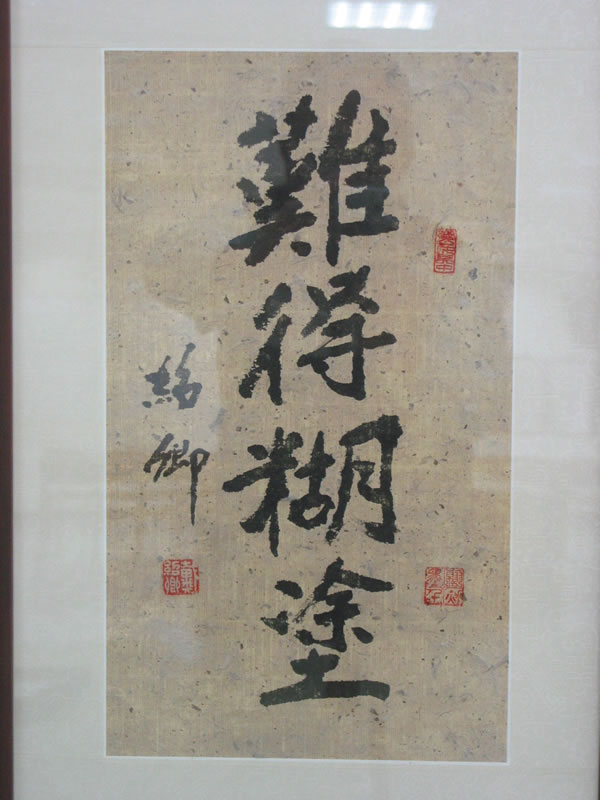 難得糊塗
紹卿